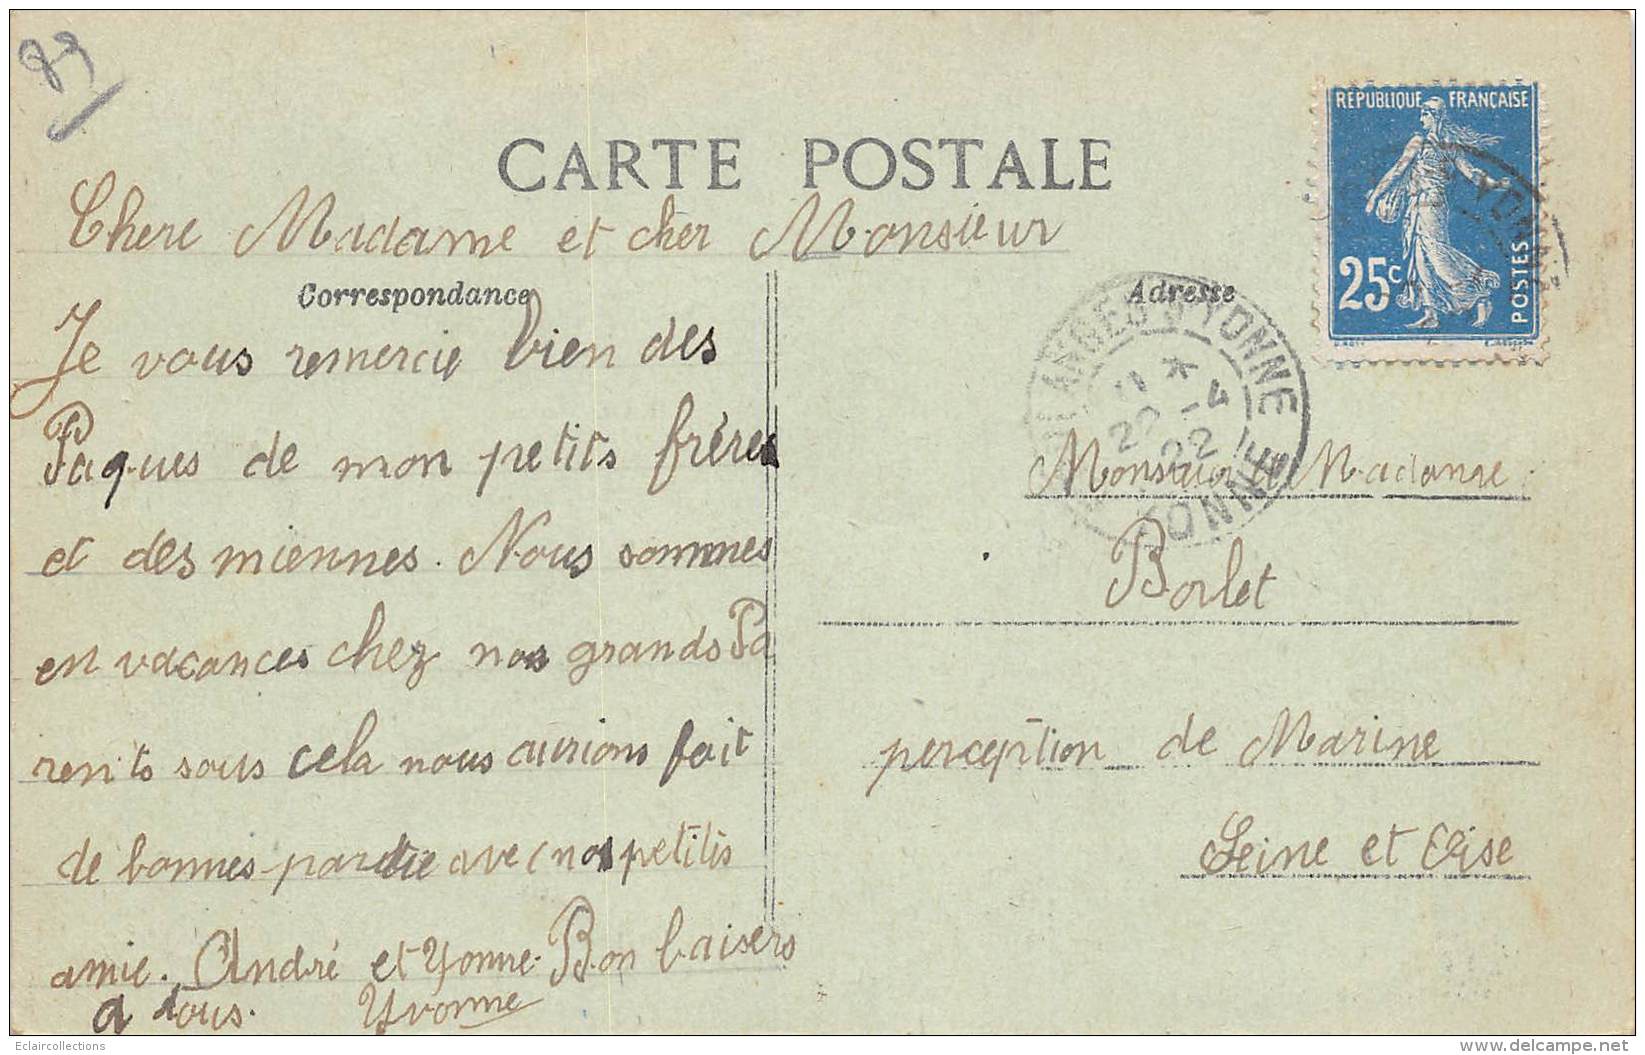 89
CARTE POSTALE
RÉPUBLIQUE FRANÇAISE
25c
POSTES
Chere Madame et cher Monsieur
Correspondance
Je vous remercie bien des
Paques de mon petits frères
et des miennes. Nous sommes
en vacances chez nos grands Pa
rents sous cela nous aurions fait
de bonnes partie avec nos petitis
amie. André et Yvonne. Bon baisers
a tous. Yvonne
Adresse
COULANGES S YONNE
11 *
22 -4
22
YONNE
Monsieur et Madame
Borlet
perception de Marine
Seine et Oise
Eclaircollections
delcampe.net